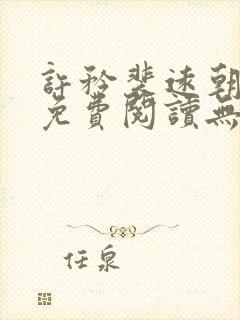 許矜裴速朝
免費閱讀無
任泉